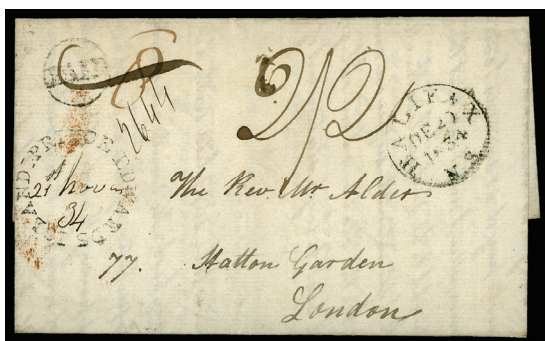 PAID
8
2644
2/2
HALIFAX
DE 2
1834
N.S
PRINCE EDWARDS ISLAND
21 Nov
34
The Rev. Mr Alder
77. Hatton Garden
London